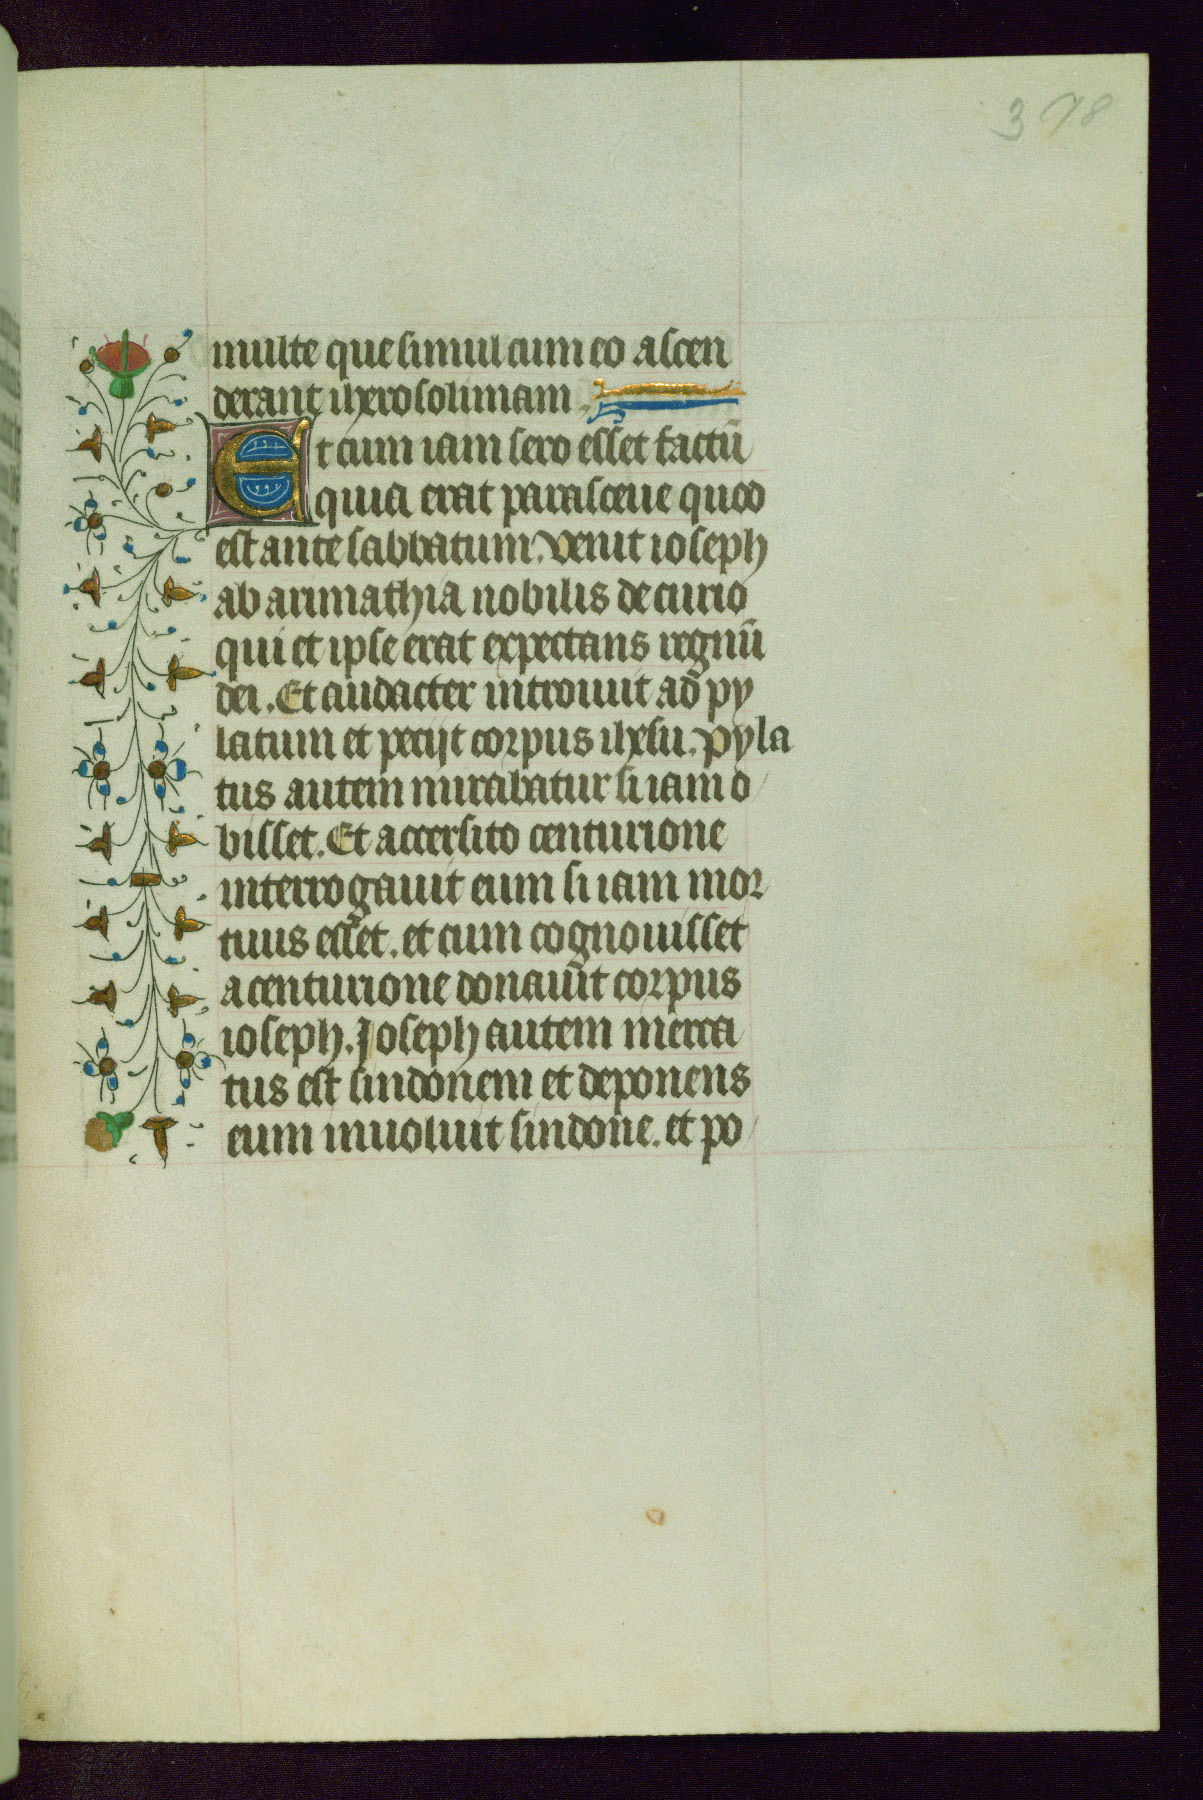 398
multe que simul cum eo ascen
derant ihxerosolimam.
Et cum iam sero esset factū
quia erat parasceue quod
est ante sabbatum. venit ioseph
ab arimathia nobilis decurio
qui et ipse erat expectans regnū
dei. Et audacter introiuit ad py
latum et petijt corpus ihxsu. pyla
tus autem mirabatur si iam o
bisset. Et accersito centurione
interrogauit eum si iam mor
tuus esset. et cum cognouisset
a centurione donauit corpus
ioseph. Joseph autem merca
tus est sindonem et deponens
eum inuoluit sindone. et po